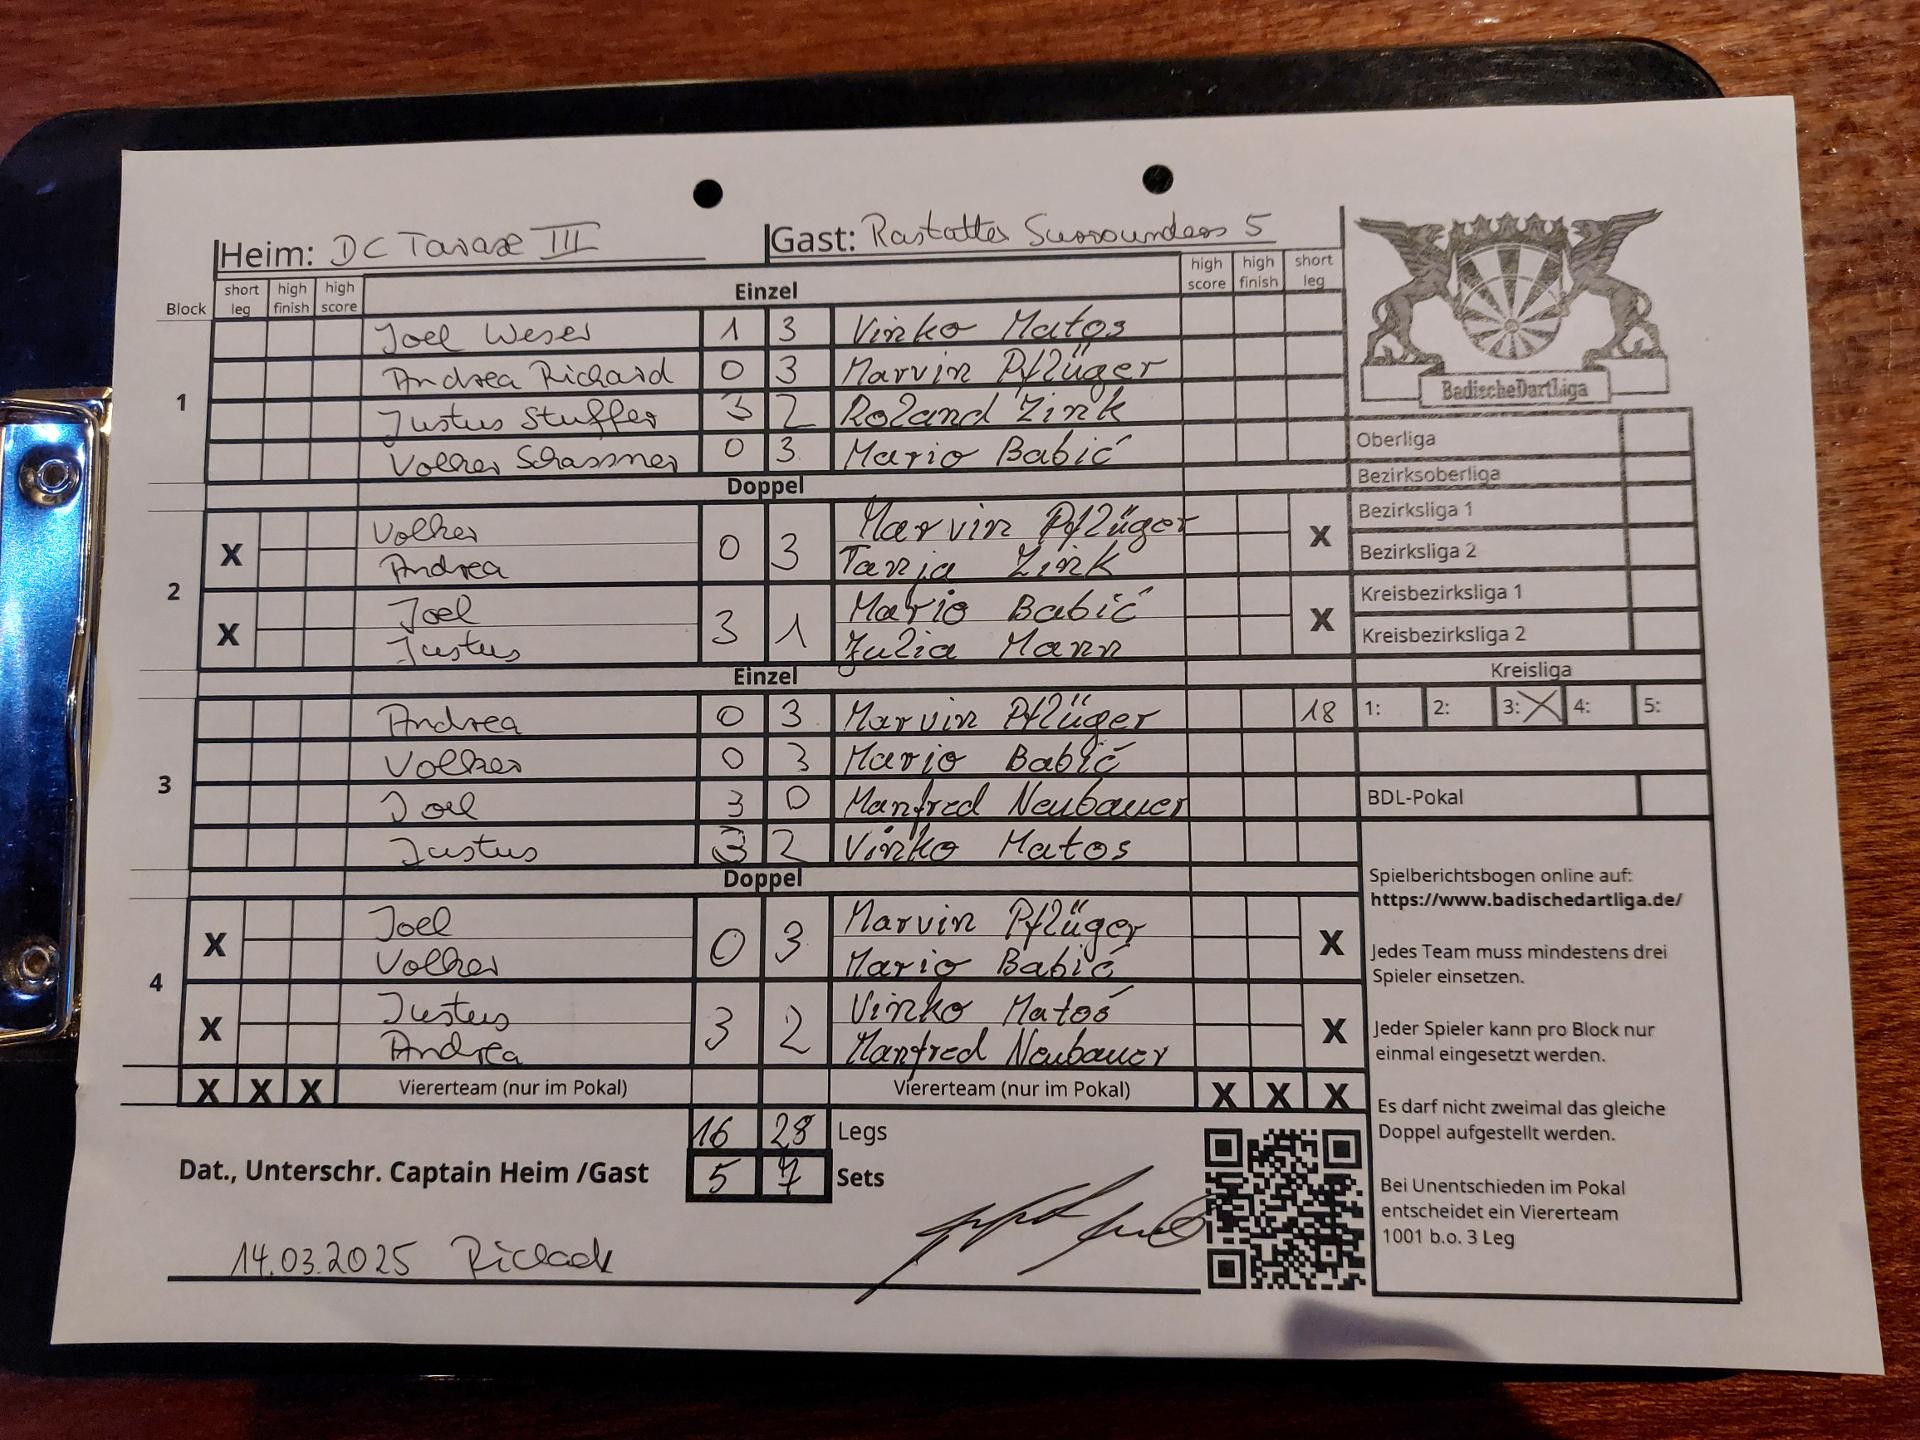 Heim: DC Tavare III Gast: Rastatter Surrounders 5
Block short leg high finish high score Einzel high score high finish short leg
BadischeDartLiga
1
Joel Weser 1 3 Vinko Matos
Andrea Richard 0 3 Marvin Pflüger
Justus Stuffer 3 2 Roland Zink
Volker Schassner 0 3 Mario Babić
Doppel
2
X Volker 0 3 Marvin Pflüger X
Andrea Tanja Zink
X Joel 3 1 Mario Babić X
Justus Julia Mann
Einzel
3
Andrea 0 3 Marvin Pflüger 18
Volker 0 3 Mario Babić
Joel 3 0 Manfred Neubauer
Justus 3 2 Vinko Matos
Doppel
4
X Joel 0 3 Marvin Pflüger X
Volker Mario Babić
X Justus 3 2 Vinko Matos X
Andrea Manfred Neubauer
X X X Viererteam (nur im Pokal) Viererteam (nur im Pokal) X X X
16 28 Legs
Dat., Unterschr. Captain Heim /Gast 5 7 Sets
14.03.2025 Richard
Oberliga
Bezirksoberliga
Bezirksliga 1
Bezirksliga 2
Kreisbezirksliga 1
Kreisbezirksliga 2
Kreisliga
1: 2: 3: X 4: 5:
BDL-Pokal
Spielberichtsbogen online auf:
https://www.badischedartliga.de/
Jedes Team muss mindestens drei
Spieler einsetzen.
Jeder Spieler kann pro Block nur
einmal eingesetzt werden.
Es darf nicht zweimal das gleiche
Doppel aufgestellt werden.
Bei Unentschieden im Pokal
entscheidet ein Viererteam
1001 b.o. 3 Leg